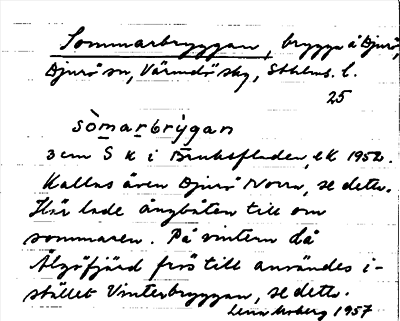 Sommarbryggan, brygga å Djurö,
Djurö sn, Värmdö skg, Sthlms. l.
25
sòmarbrỳgan
3 cm S k i Bruksfladen, ek 1952.
Kallas även Djurö Norra, se detta.
Här lade ångbåten till om
sommaren. På vintern då
Älgöfjärd frös till användes i-
stället Vinterbryggan, se detta.
Lena Moberg 1957